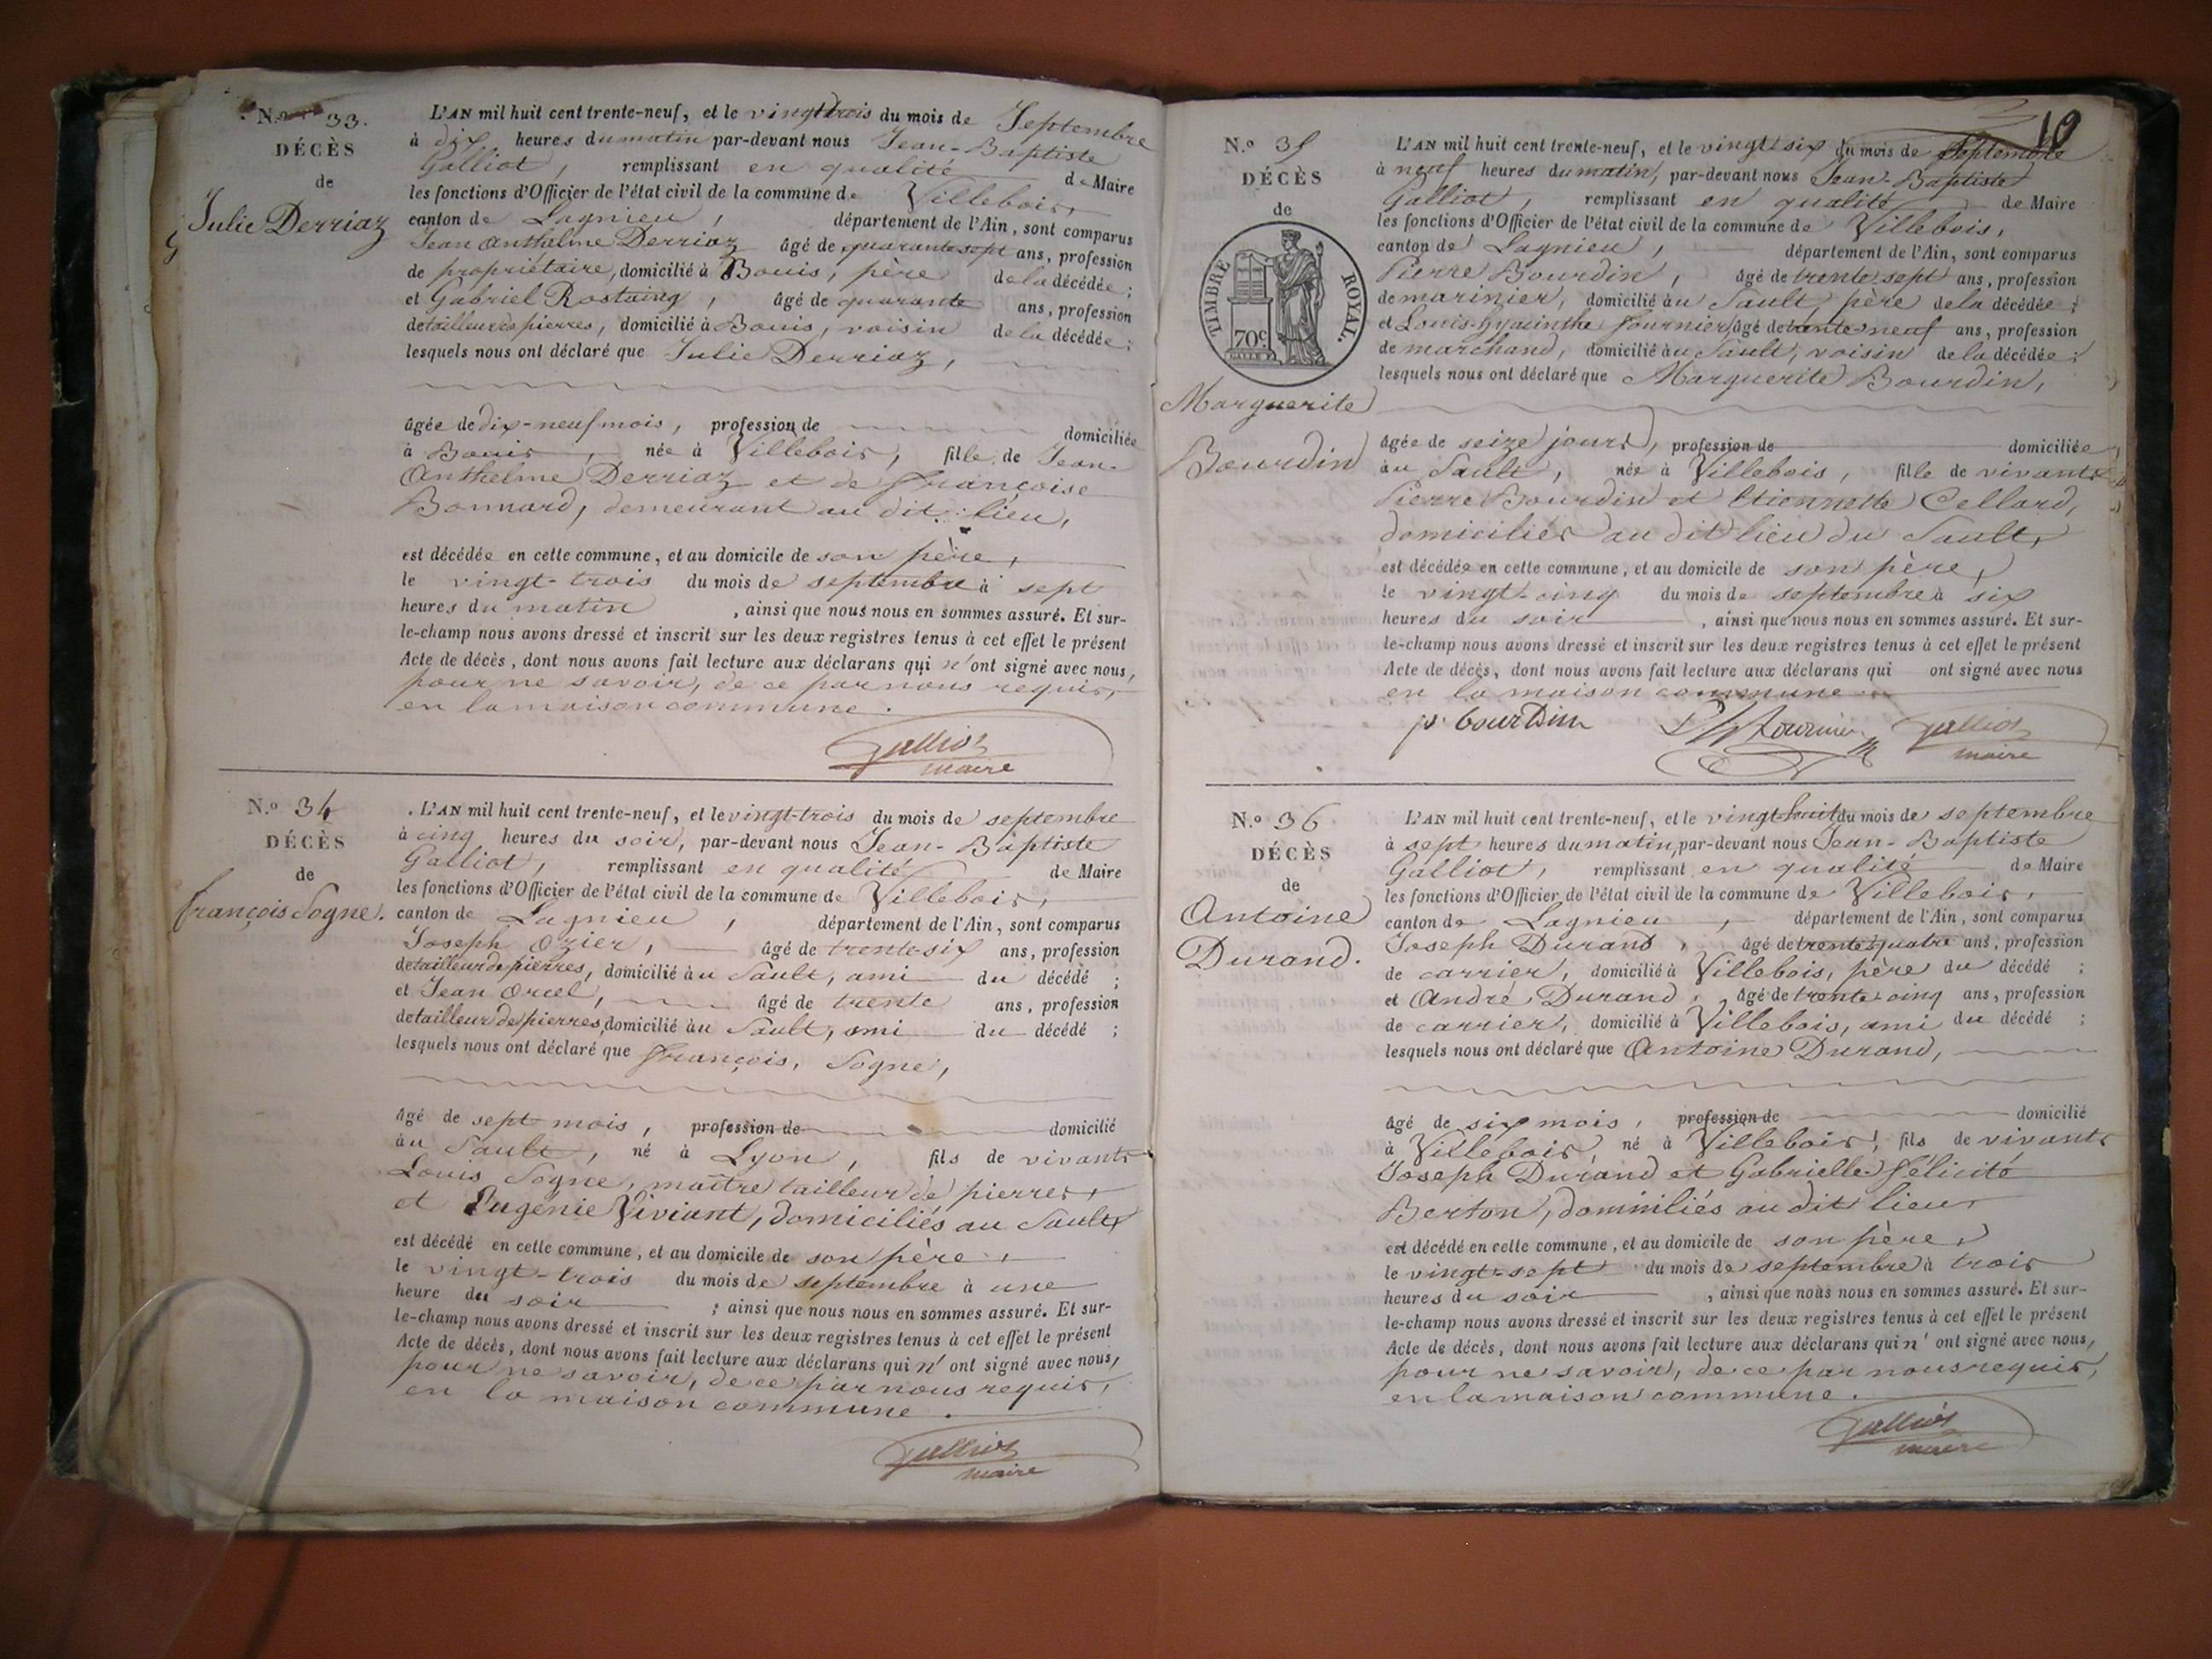 N.o 33.
DÉCÈS
de
Julie Derriaz
L'AN mil huit cent trente-neuf, et le vingt trois du mois de Septembre
à dix heures du matin par-devant nous Jean-Baptiste
Galliot, remplissant en qualité de Maire
les fonctions d'Officier de l'état civil de la commune de Villebois,
canton de Lagnieu, département de l'Ain, sont comparus
Jean Anthelme Derriaz âgé de quarante sept ans, profession
de propriétaire, domicilié à Bouis, père de la décédée ;
et Gabriel Rostaing, âgé de quarante ans, profession
de tailleur de pierres, domicilié à Bouis, voisin de la décédée ;
lesquels nous ont déclaré que Julie Derriaz,
âgée de dix-neuf mois, profession de domiciliée
à Bouis, née à Villebois, fille de Jean-
Anthelme Derriaz et de Françoise
Bonnard, demeurant au dit lieu,
est décédée en cette commune, et au domicile de son père,
le vingt-trois du mois de septembre à sept
heures du matin, ainsi que nous nous en sommes assuré. Et sur-
le-champ nous avons dressé et inscrit sur les deux registres tenus à cet effet le présent
Acte de décès, dont nous avons fait lecture aux déclarans qui n'ont signé avec nous,
pour ne savoir, de ce par nous requis,
en la maison commune.
Galliot
maire
N.o 34
DÉCÈS
de
François Sogne.
L'AN mil huit cent trente-neuf, et le vingt-trois du mois de septembre
à cinq heures du soir, par-devant nous Jean-Baptiste
Galliot, remplissant en qualité de Maire
les fonctions d'Officier de l'état civil de la commune de Villebois,
canton de Lagnieu, département de l'Ain, sont comparus
Joseph Ozier, âgé de trente-six ans, profession
de tailleur de pierres, domicilié au Sault, ami du décédé ;
et Jean Orcel, âgé de trente ans, profession
de tailleur de pierres, domicilié au Sault, ami du décédé ;
lesquels nous ont déclaré que François, Sogne,
âgé de sept mois, profession de domicilié
au Sault, né à Lyon, fils de vivants
Louis Sogne, maître tailleur de pierres,
et Eugénie Viviant, domiciliés au Sault,
est décédé en cette commune, et au domicile de son père,
le vingt-trois du mois de septembre à une
heure du soir ; ainsi que nous nous en sommes assuré. Et sur-
le-champ nous avons dressé et inscrit sur les deux registres tenus à cet effet le présent
Acte de décès, dont nous avons fait lecture aux déclarans qui n'ont signé avec nous,
pour ne savoir, de ce par nous requis,
en la maison commune.
Galliot
maire
10
N.o 35
DÉCÈS
de
TIMBRE ROYAL.
70c
Marguerite
Bourdin
L'AN mil huit cent trente-neuf, et le vingt six du mois de Septembre
à neuf heures du matin, par-devant nous Jean-Baptiste
Galliot, remplissant en qualité de Maire
les fonctions d'Officier de l'état civil de la commune de Villebois,
canton de Lagnieu, département de l'Ain, sont comparus
Pierre Bourdin, âgé de trente sept ans, profession
de marinier, domicilié au Sault, père de la décédée ;
et Louis-Hyacinthe Fournier, âgé de trente neuf ans, profession
de marchand, domicilié au Sault, voisin de la décédée ;
lesquels nous ont déclaré que Marguerite Bourdin,
âgée de seize jours, profession de domiciliée
au Sault, née à Villebois, fille de vivants
Pierre Bourdin et Etiennette Cellard,
domiciliés au dit lieu du Sault,
est décédée en cette commune, et au domicile de son père,
le vingt-cinq du mois de septembre à six
heures du soir, ainsi que nous nous en sommes assuré. Et sur-
le-champ nous avons dressé et inscrit sur les deux registres tenus à cet effet le présent
Acte de décès, dont nous avons fait lecture aux déclarans qui ont signé avec nous
en la maison commune
p. bourdin Fournier Galliot
maire
N.o 36
DÉCÈS
de
Antoine
Durand.
L'AN mil huit cent trente-neuf, et le vingt huit du mois de septembre
à sept heures du matin, par-devant nous Jean-Baptiste
Galliot, remplissant en qualité de Maire
les fonctions d'Officier de l'état civil de la commune de Villebois,
canton de Lagnieu, département de l'Ain, sont comparus
Joseph Durand, âgé de trente quatre ans, profession
de carrier, domicilié à Villebois, père du décédé ;
et André Durand, âgé de trente cinq ans, profession
de carrier, domicilié à Villebois, ami du décédé ;
lesquels nous ont déclaré que Antoine Durand,
âgé de six mois, profession de domicilié
à Villebois, né à Villebois, fils de vivants
Joseph Durand et Gabrielle Félicité
Berton, domiliés au dit lieu,
est décédé en cette commune, et au domicile de son père,
le vingt-sept du mois de septembre à trois
heures du soir, ainsi que nous nous en sommes assuré. Et sur-
le-champ nous avons dressé et inscrit sur les deux registres tenus à cet effet le présent
Acte de décès, dont nous avons fait lecture aux déclarans qui n'ont signé avec nous,
pour ne savoir, de ce par nous requis,
en la maison commune.
Galliot
maire